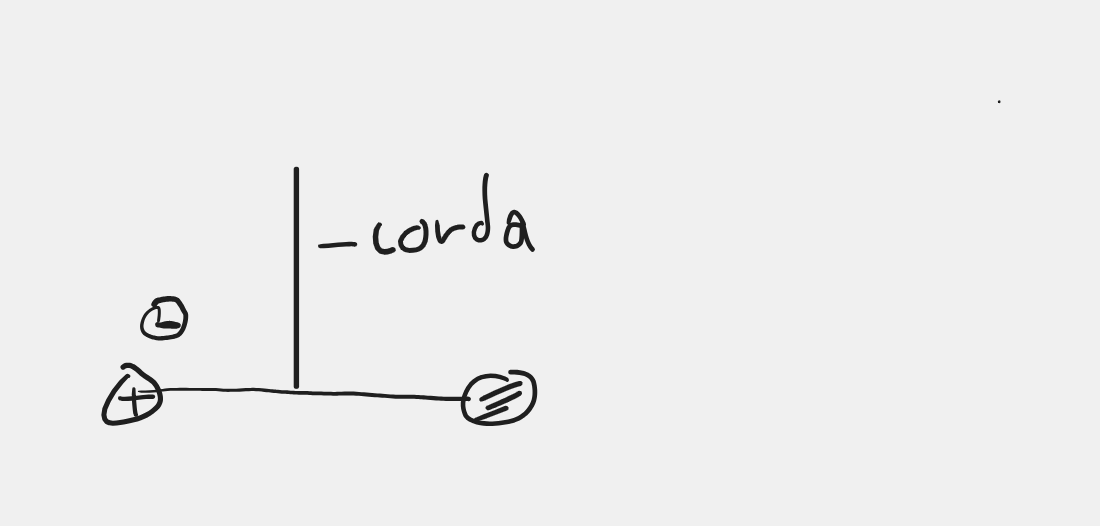 - corda
-
+